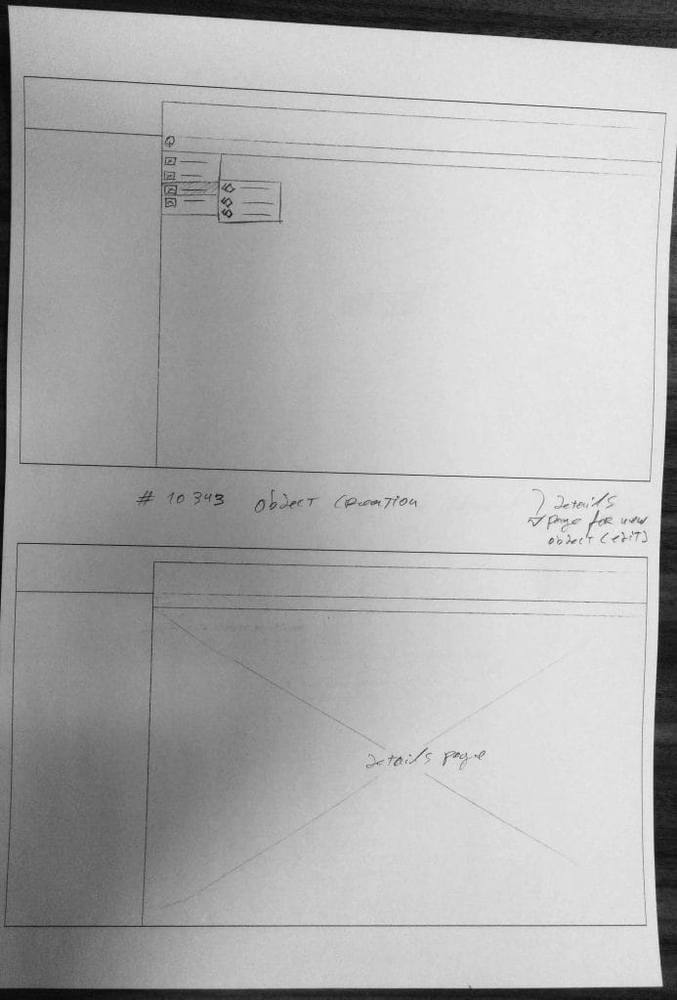 # 10343 object creation
details
page for new
object (edit)
details page